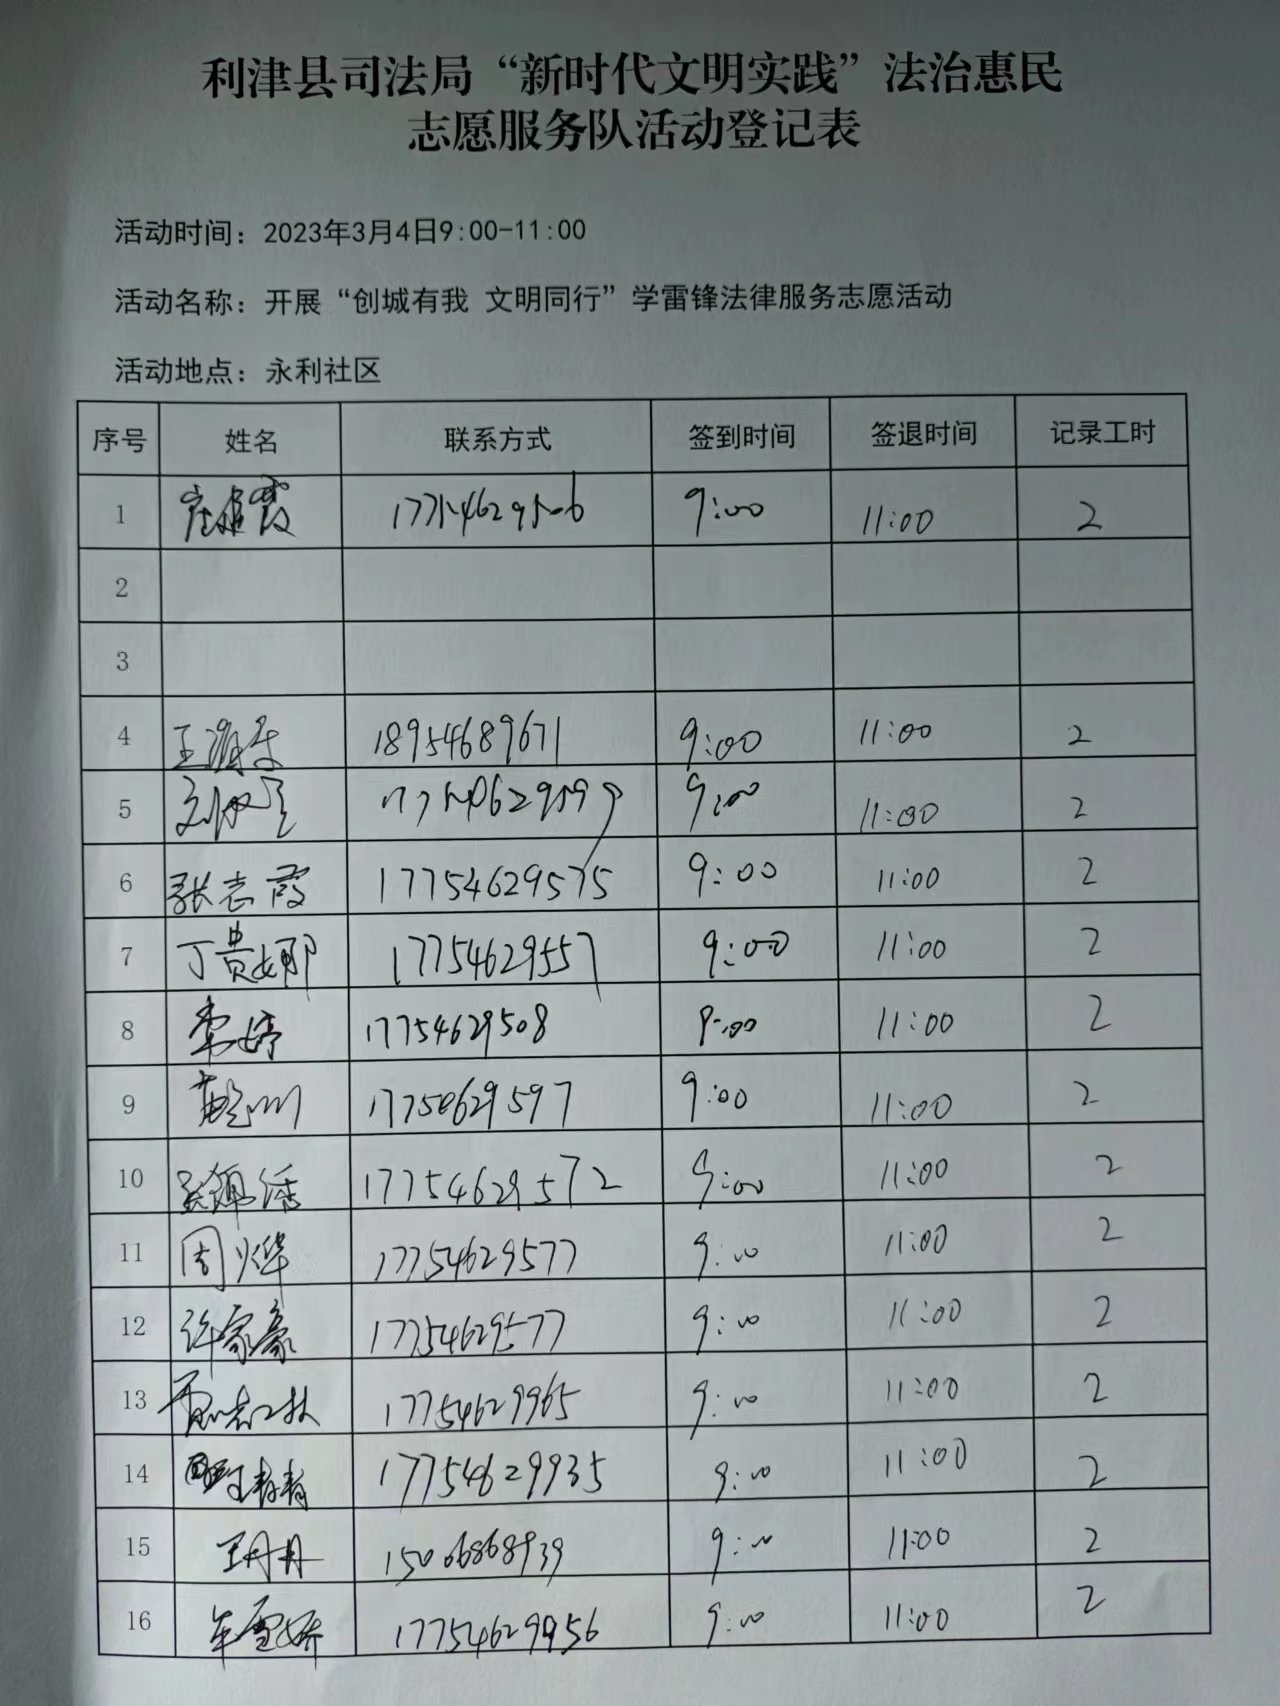 利津县司法局“新时代文明实践”法治惠民
志愿服务队活动登记表
活动时间：2023年3月4日9:00-11:00
活动名称：开展“创城有我 文明同行”学雷锋法律服务志愿活动
活动地点：永利社区
序号 姓名 联系方式 签到时间 签退时间 记录工时
1 17754629506 9:00 11:00 2
2
3
4 18954689671 9:00 11:00 2
5 9:00 11:00 2
6 张志霞 17754629575 9:00 11:00 2
7 丁贵娜 17754629557 9:00 11:00 2
8 李婷 17754629508 9:00 11:00 2
9 9:00 11:00 2
10 17754629572 9:00 11:00 2
11 周烨 17754629577 9:00 11:00 2
12 许家豪 17754629577 9:00 11:00 2
13 17754629965 9:00 11:00 2
14 17754629935 9:00 11:00 2
15 王丹丹 15066868939 9:00 11:00 2
16 车雪娇 17754629956 9:00 11:00 2